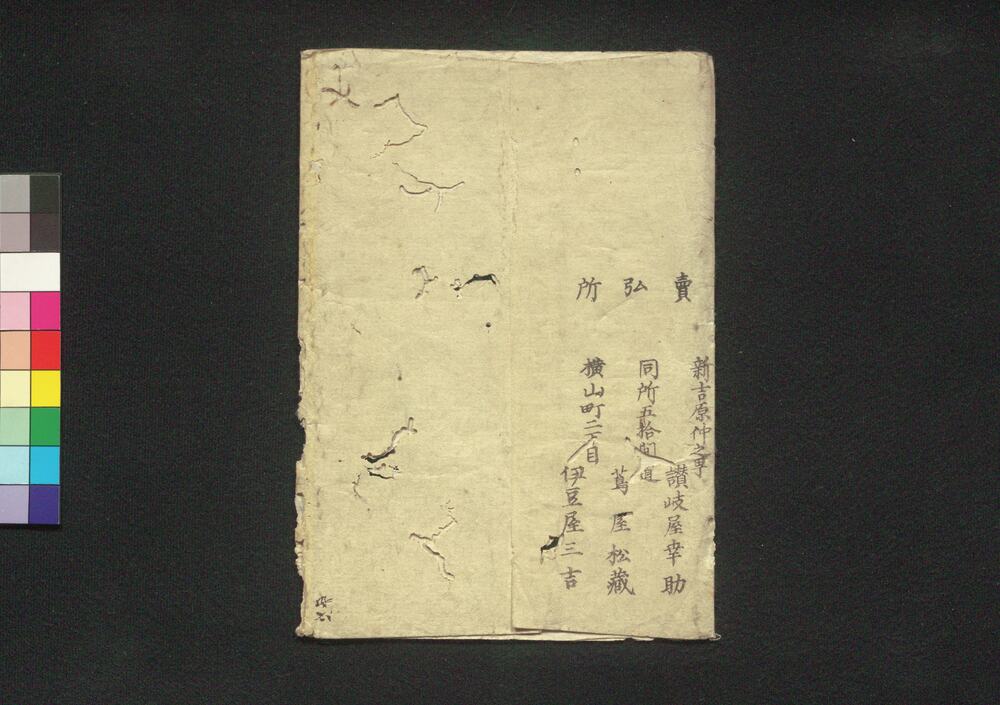 賣弘所
新吉原仲之町
讃岐屋幸助
同所五拾間道
蔦屋松藏
横山町二丁目
伊豆屋三吉